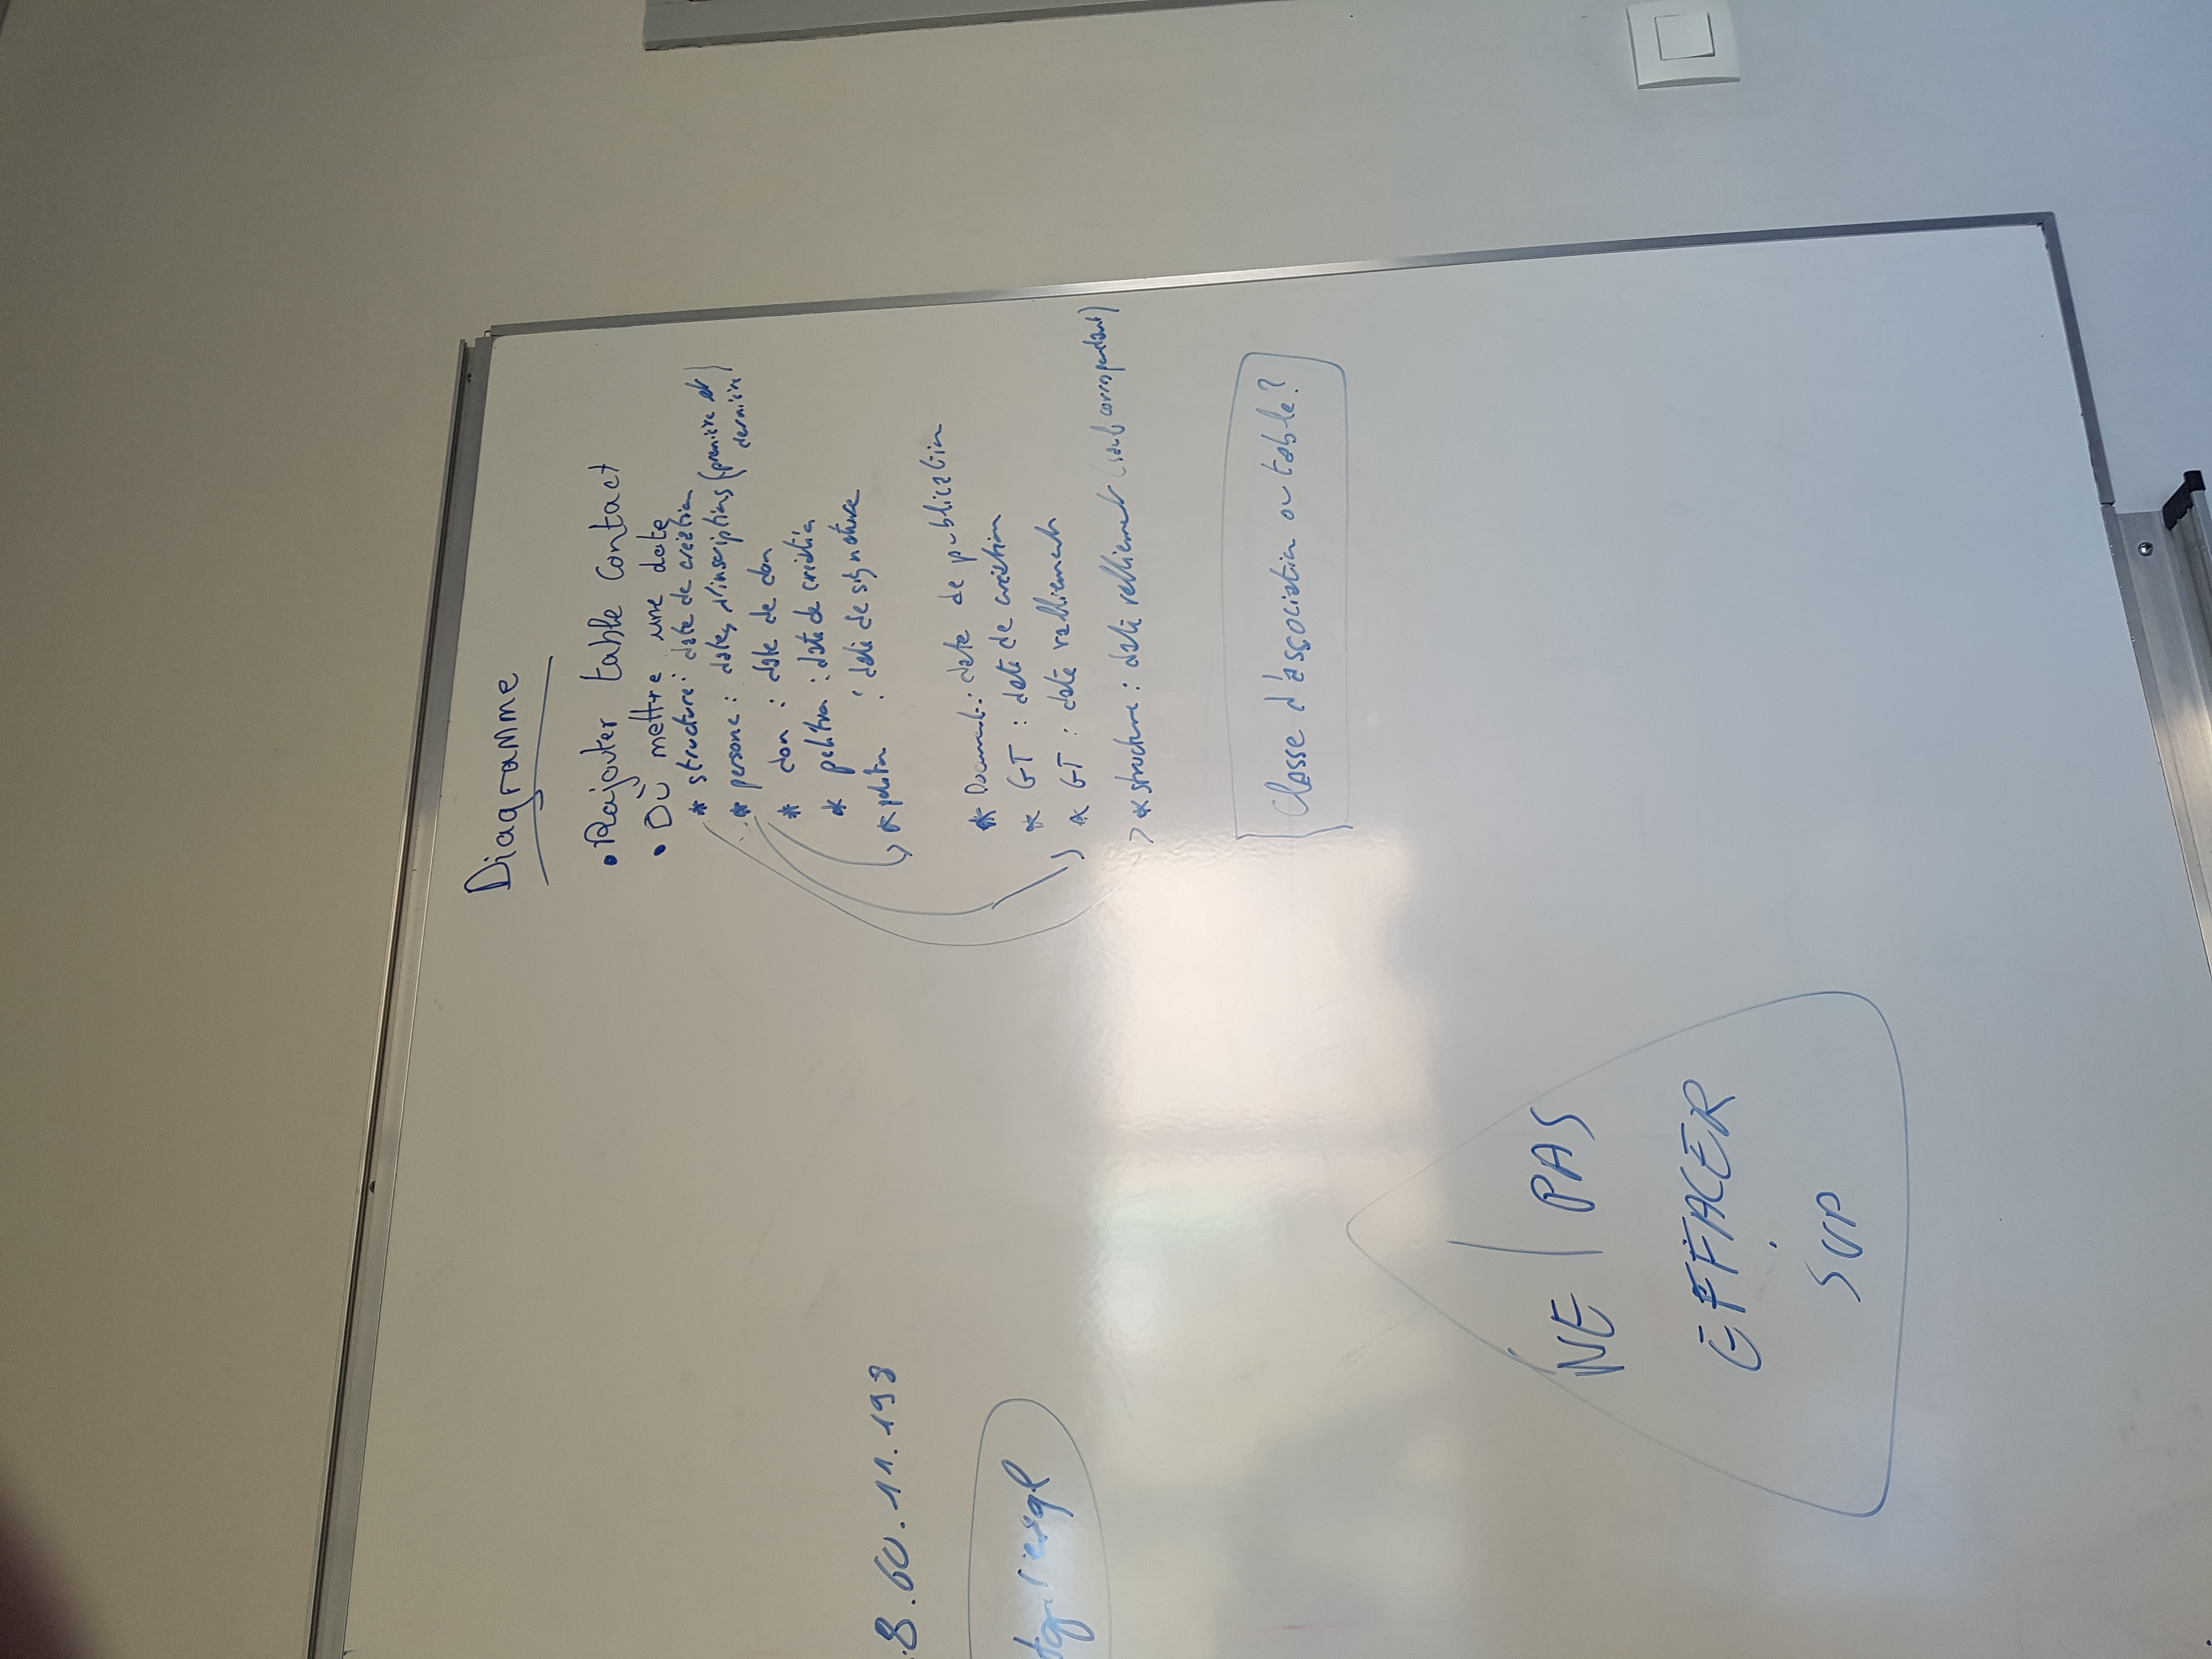 Diagramme
• Rajouter table contact
• Où mettre une date
* structure : date de création
* persone : dates d'inscriptions (première et
dernière)
* don : date de don
* pétition : date de création
* pétition : date de signature
* Document : date de publication
* GT : date de création
* GT : date ralliement
* structure : date ralliement (sauf correspondant)
Classe d'association ou table?
8.60.11.198
NE PAS
EFFACER
SVP